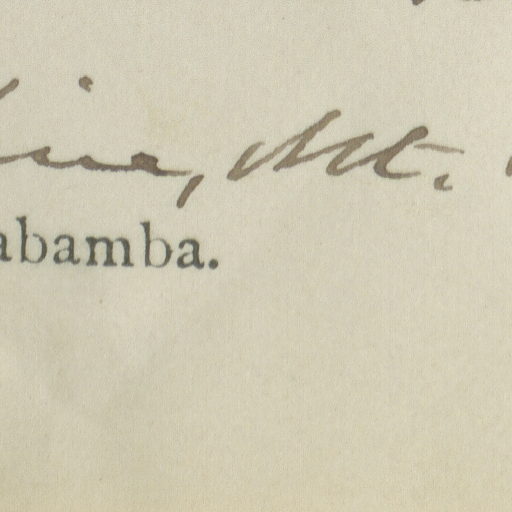 ine, Mt.
abamba.